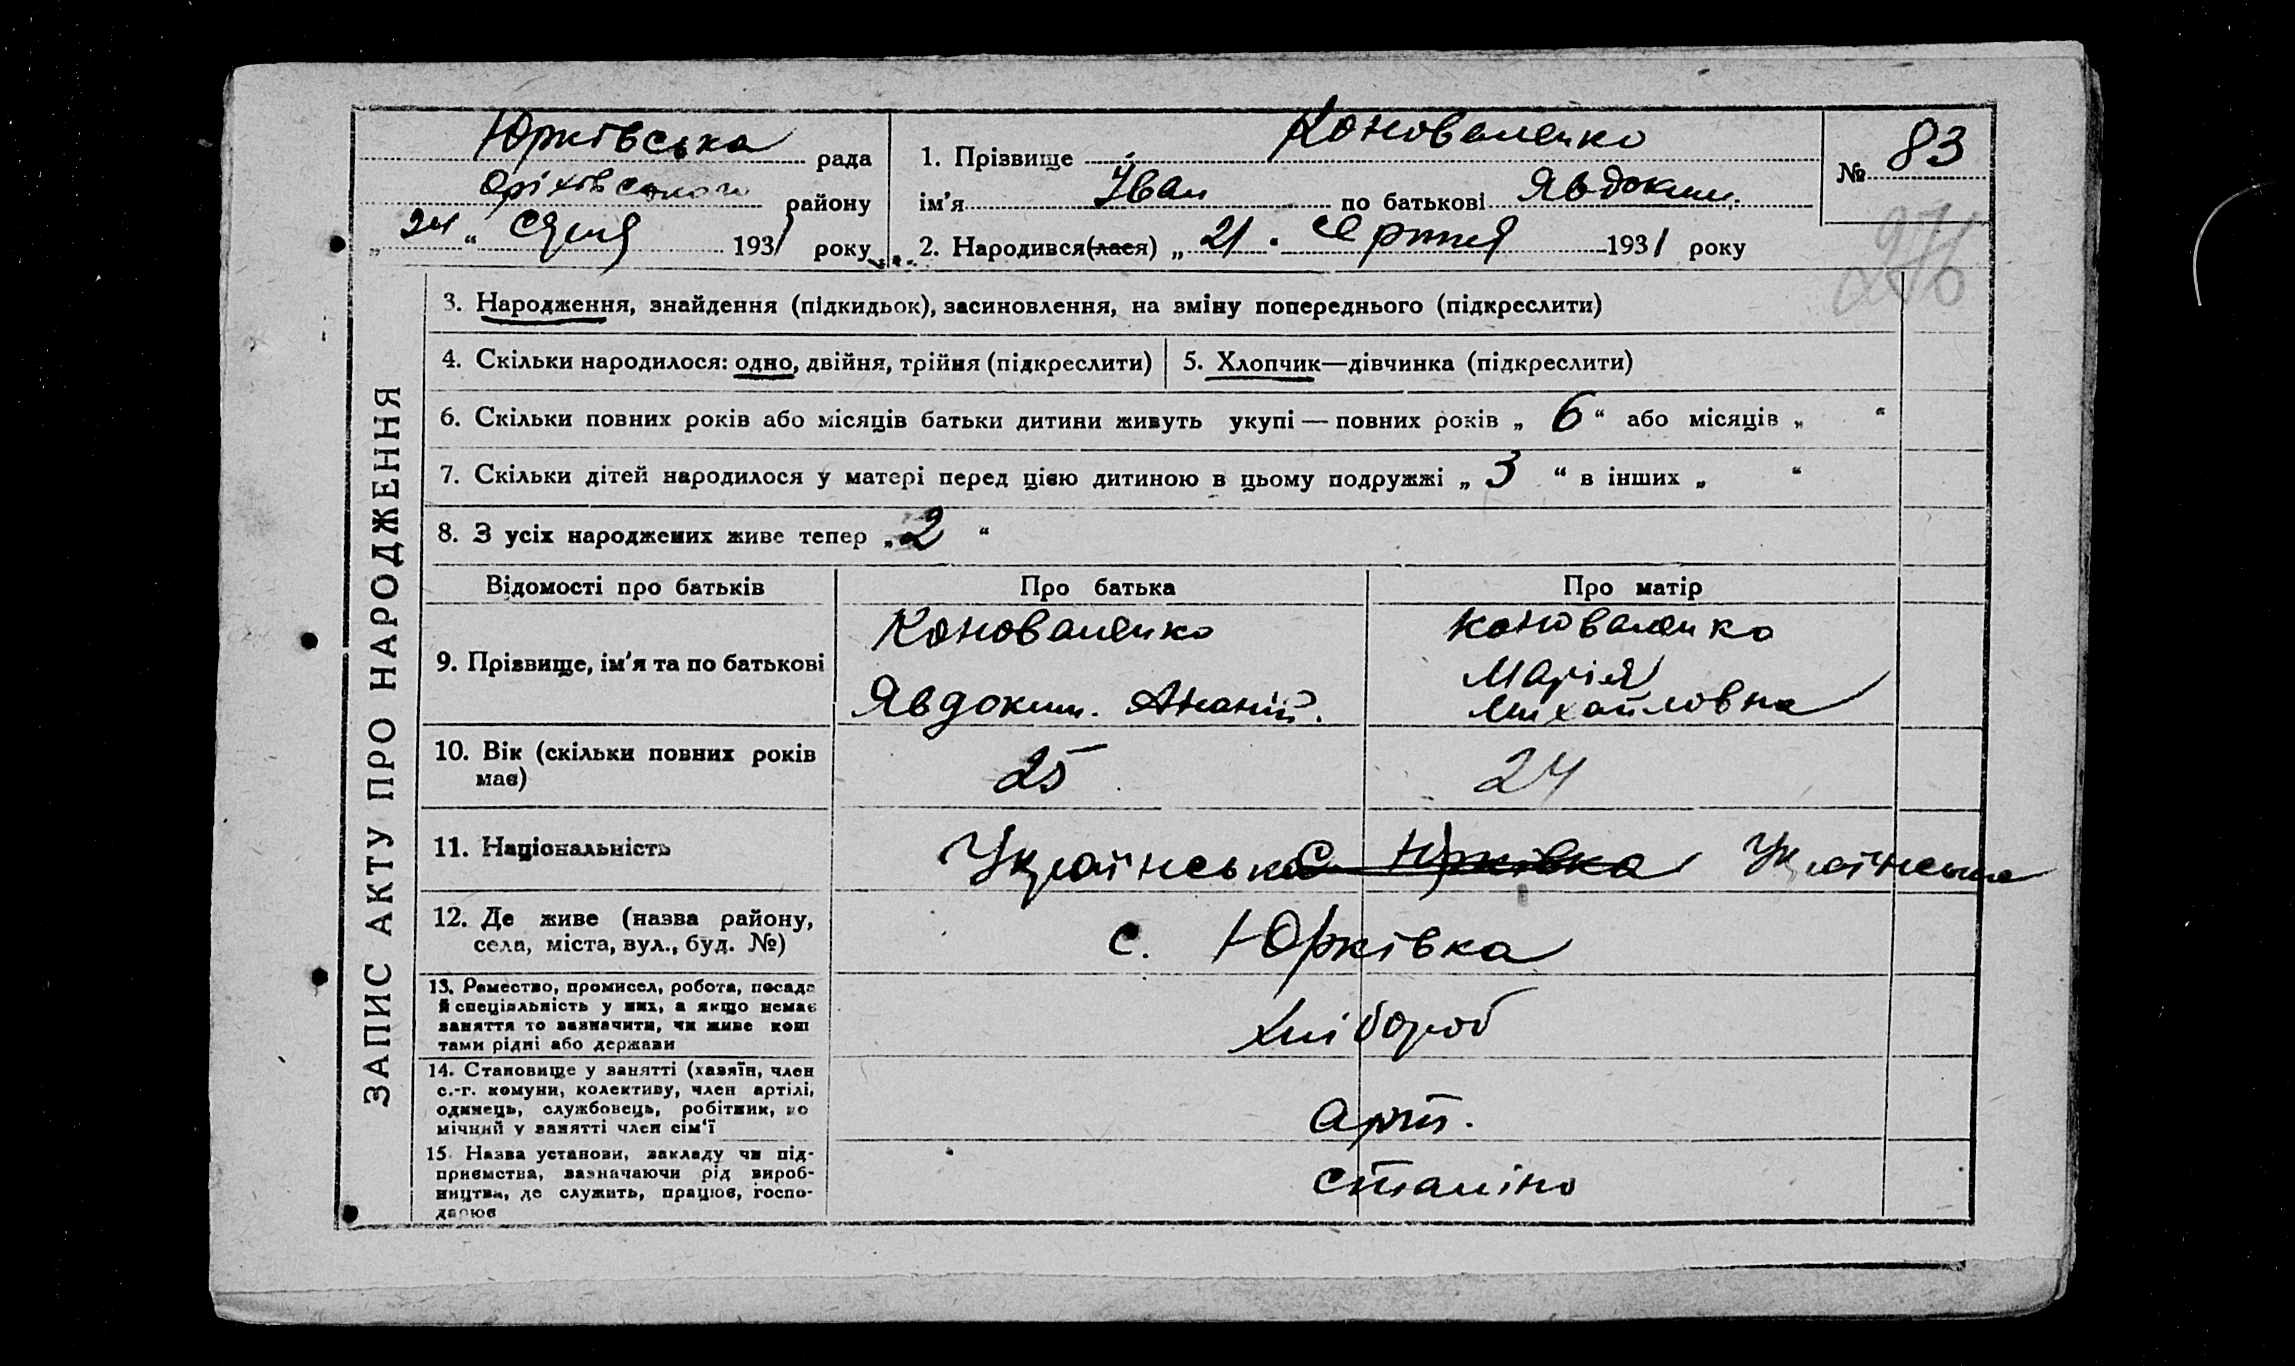 Юрківська рада
Оріхівського району
„ 24 “ Серпня 1931 року
1. Прізвище Коноваленко
ім'я Іван по батькові Явдоким.
2. Народився(лася) „ 21 “ Серпня 1931 року
№ 83
276
ЗАПИС АКТУ ПРО НАРОДЖЕННЯ
3. Народження, знайдення (підкидьок), засиновлення, на зміну попереднього (підкреслити)
4. Скільки народилося: одно, двійня, трійня (підкреслити)
5. Хлопчик—дівчинка (підкреслити)
6. Скільки повних років або місяців батьки дитини живуть укупі — повних років „ 6 “ або місяців „ “
7. Скільки дітей народилося у матері перед цією дитиною в цьому подружжі „ 3 “ в інших „ “
8. З усіх народжених живе тепер „ 2 “
Відомості про батьків
Про батька
Про матір
9. Прізвище, ім'я та по батькові
Коноваленко
Явдоким. Ананій.
Коноваленко
Марія
Михайловна
10. Вік (скільки повних років
має)
25
24
11. Національність
Українська с. Юрківка Українська
12. Де живе (назва району,
села, міста, вул., буд. №)
с. Юрківка
13. Ремество, промисел, робота, посада
й спеціяльність у них, а якщо немає
заняття то зазначити, чи живе кош
тами рідні або держави
Хлібороб
14. Становище у занятті (хазяїн, член
с.-г. комуни, колективу, член артілі,
одинець, службовець, робітник, по
мічний у занятті член сім'ї
Арт.
15. Назва установи, закладу чи під-
приємства, зазначаючи рід вироб-
ництва, де служить, працює, госпо-
дарює
Сталіно